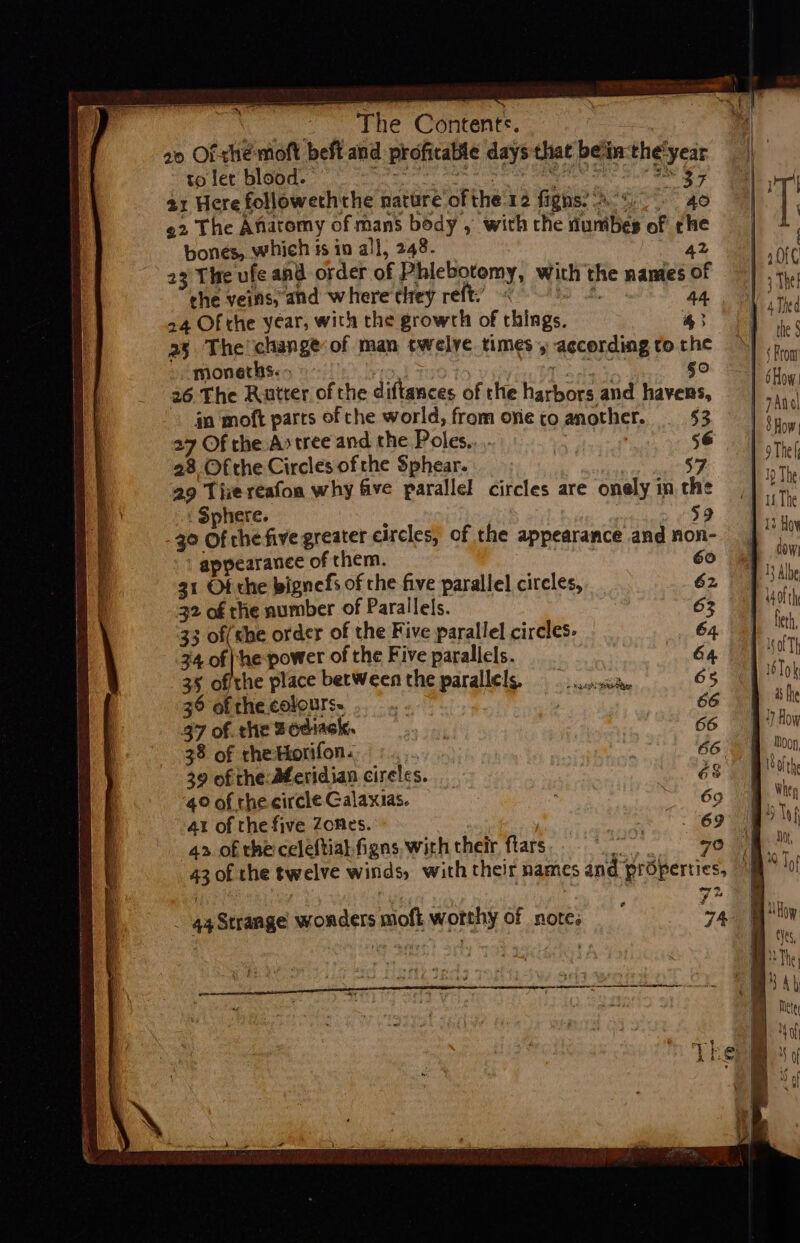 The Contents.
20 Of the moſt beſt and profitable days that be in the year
to let blood. 37
21 Here followeth the nature of the 12 ſigns. 40
22 The Anatomy of mans body, with the numbes of the
bones, which is in all, 248. 42
23 The uſe and order of Phlebotomy, with the names of
the veins, and where they reſt. 44
24 Of the year, with the growth of things. 4
25 The change of man twelve times, according to the
moneths. 50
26 The Rutter of the diſtances of the harbors and havens,
in moſt parts of the world, from one to another. 53
27 Of the Axtree and the Poles. 56
28 Of the Circles of the Sphear. 57
29 The reaſon why five parallel circles are onely in the
Sphere. 59
30 Of the five greater circles, of the appearance and non-
appearance of them. 60
31 Of the bigneſs of the five parallel circles, 62
32 of the number of Parallels. 63
33 of(the order of the Five parallel circles. 64
34 of) he power of the Five parallels. 64
35 of the place between the parallels. 65
36 of the colours. 66
37 of the Zodiack. 66
38 of the Horiſon. 66
39 of the Meridian circles. 68
40 of the circle Galaxias. 69
41 of the five Zones. 69
42 of the celeſtial ſigns with their ſtars. 70
43 of the twelve winds, with their names and properties,
72
44 Strange wonders moſt worthy of note. 74
The